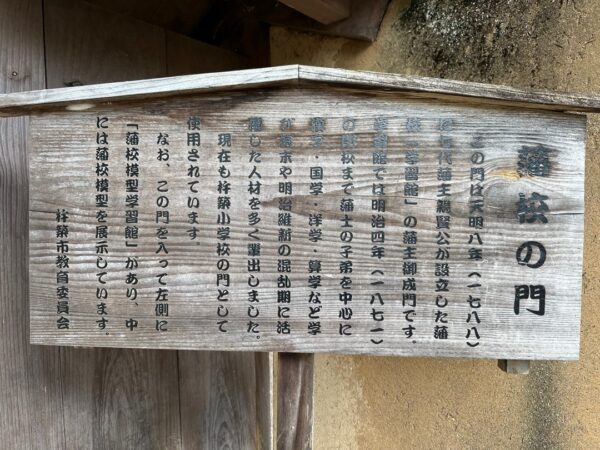 藩校の門
この門は天明八年(一七八八)
に七代藩主親賢公が設立した藩
校「学習館」の藩主御成門です。
学習館では明治四年(一八七一)
の廃校まで藩士の子弟を中心に
漢学・国学・洋学・算学など学
び幕末や明治維新の混乱期に活
躍した人材を多く輩出しました。
現在も杵築小学校の門として
使用されています。
なお この門を入って左側に
「藩校模型学習館」があり、中
には藩校模型を展示しています。
杵築市教育委員会